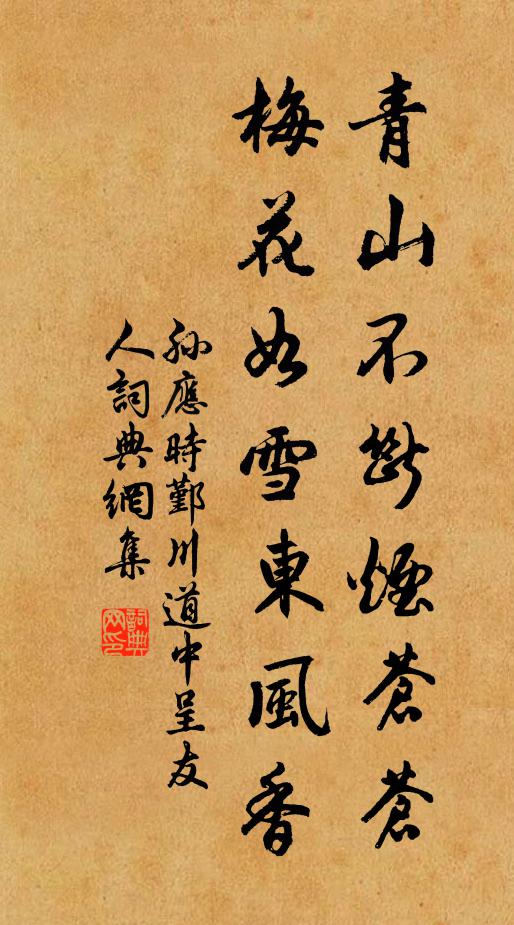 青山不斷煙蒼蒼
梅花如雪東風香
孫應時鄞川道中呈友
人詞典網集
詞典網印